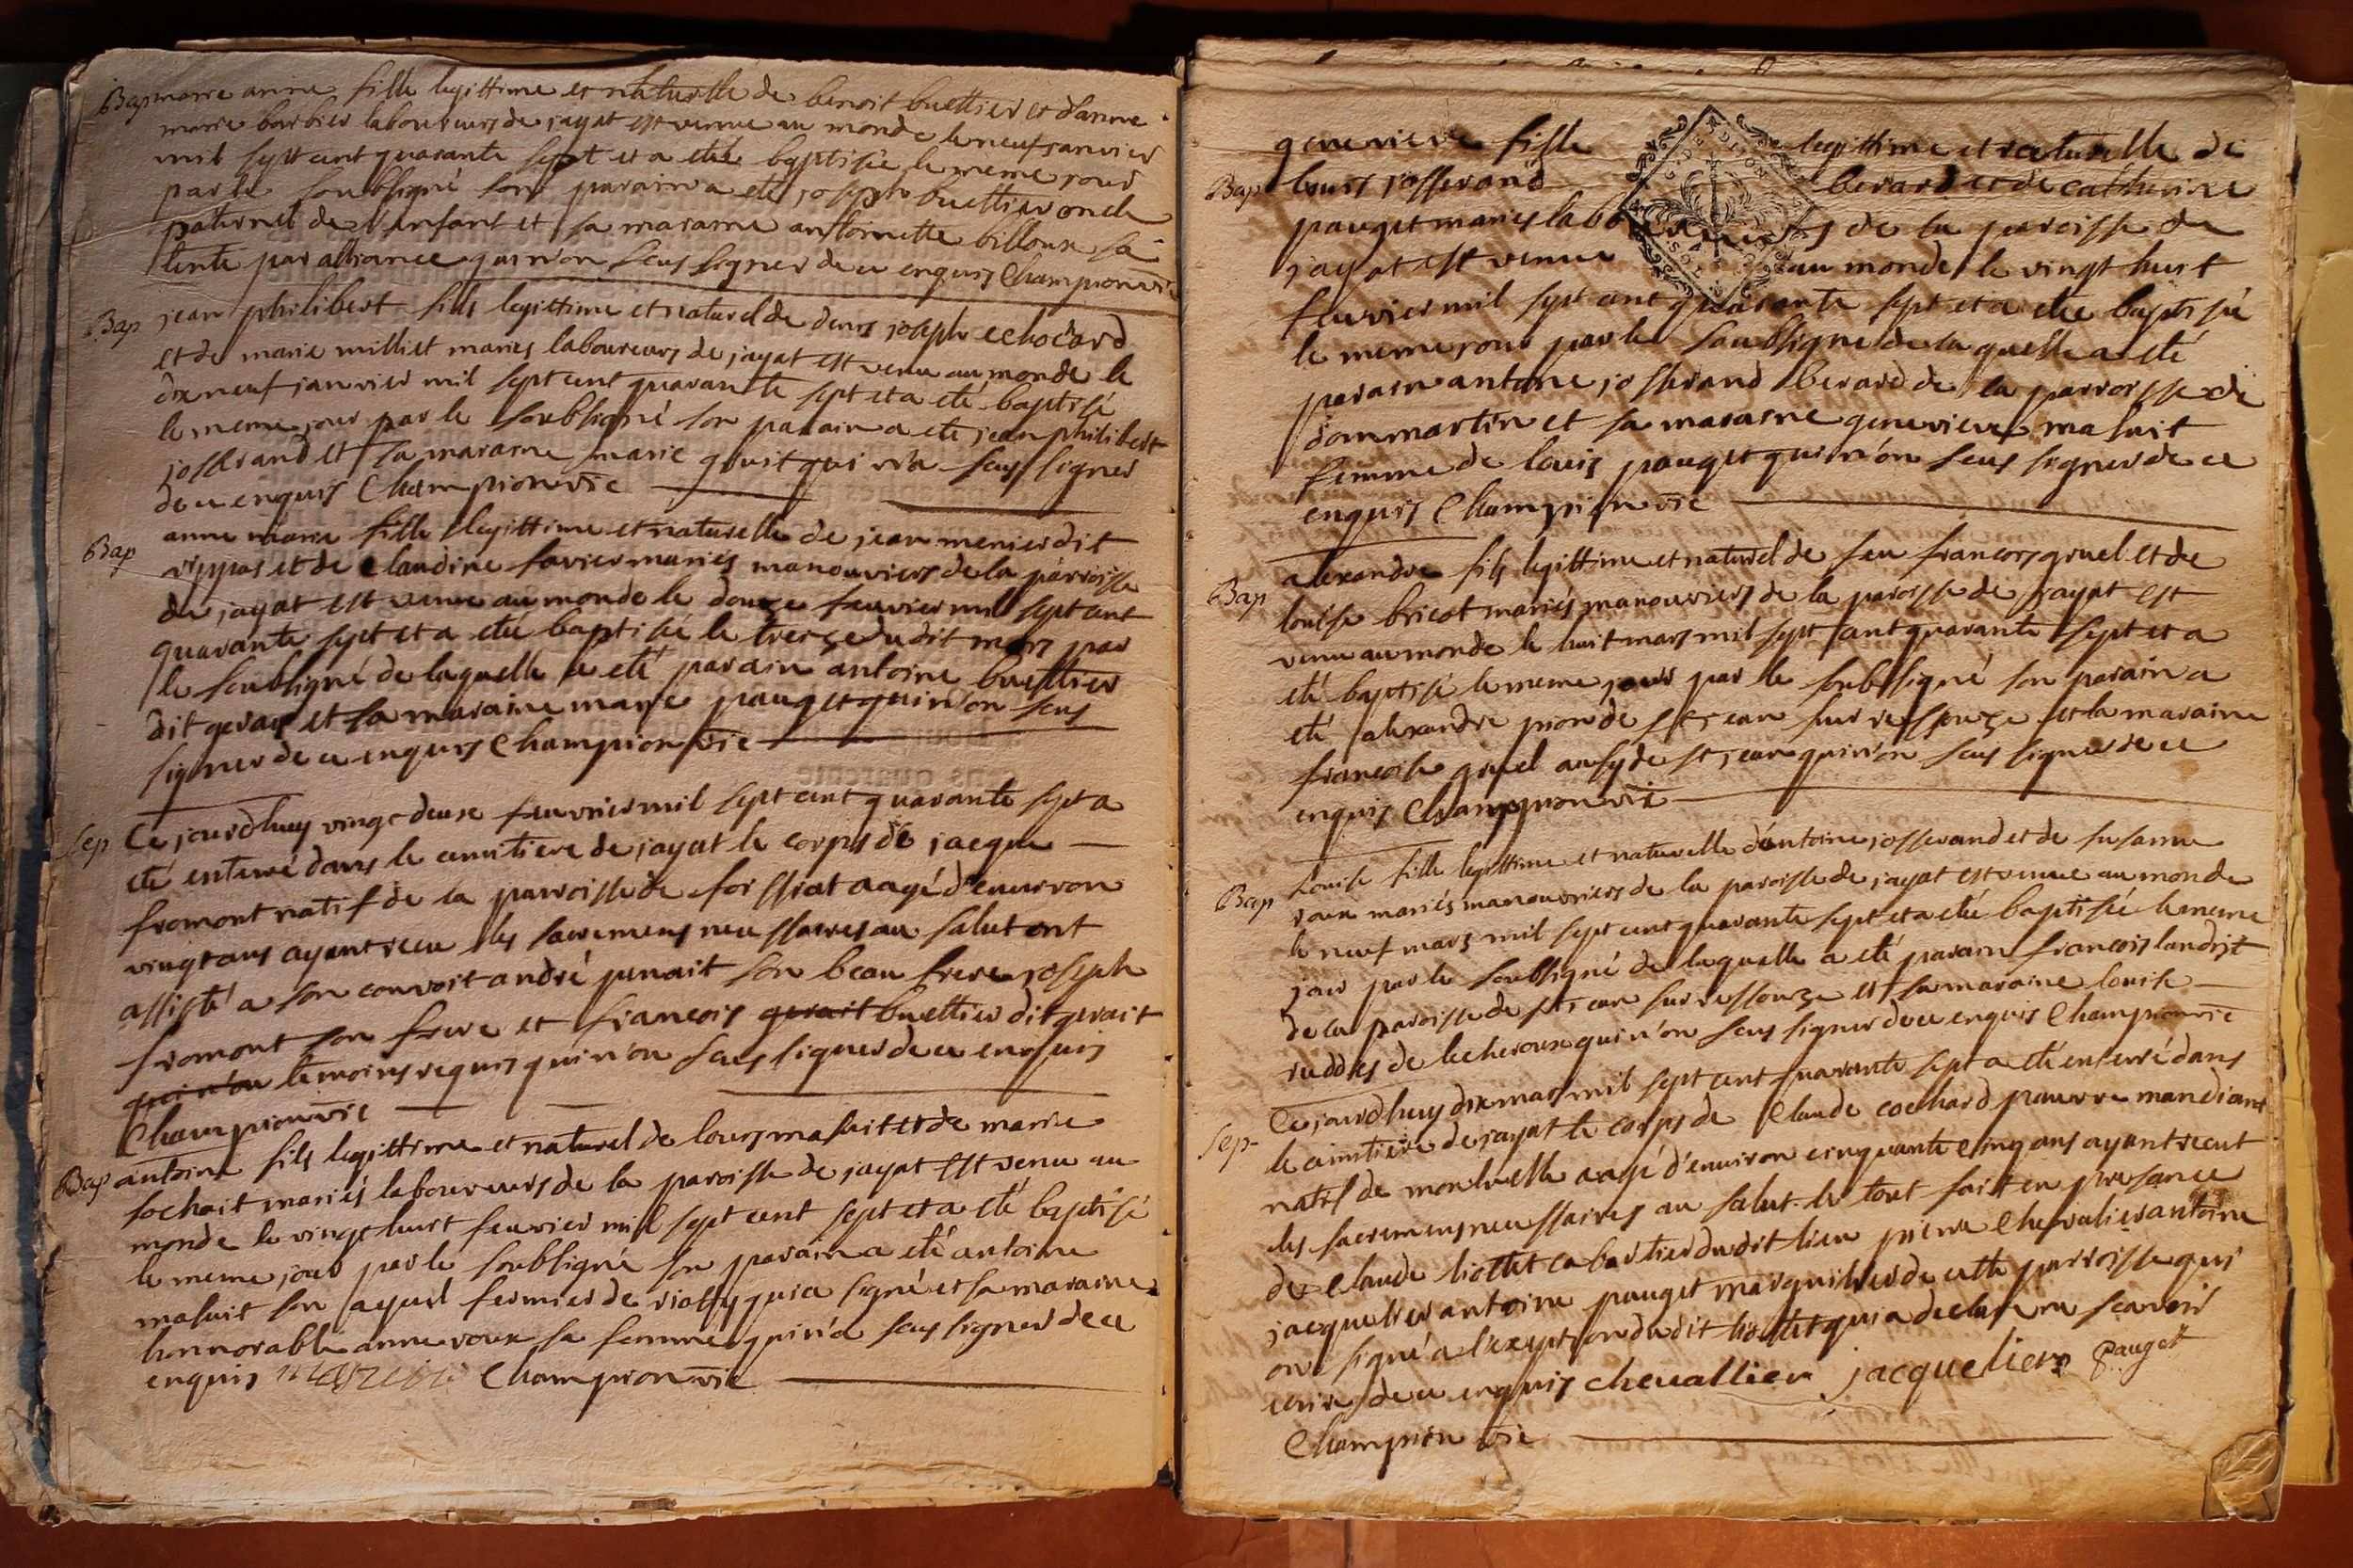 Bap marie anne fille legittime et naturelle de benoit buettier et d'anne
marie barbier laboureurs de jayat est venue au monde le neuf janvier
mil sept cent quarante sept et a etée baptisée le meme jour
par le soubsigné son parain a eté joseph buettier oncle
paternel de l'enfant et sa maraine antoinette billoux sa
tente par alliance qui n'on seus signer de ce enquis Champion vic
Bap jean philibert fils legittime et naturel de denis joseph echocard
et de marie milliet mariés laboureurs de jayat est venu au monde le
dix neuf janvier mil sept cent quarante sept et a eté baptisé
le meme jour par le soubsigné son parain a eté jean philibert
josserand et sa maraine marie qui n'a seus signer
de ce enquis Champion vic
Bap anne marie fille legittime et naturelle de jean menier dit
et de claudine favier mariés manouvriers de la parroisse
de jayat est venue au monde le douze feuvrier mil sept cent
quarante sept et a etée baptisée le treize du dit mois par
le soubsigné de laquelle a eté parain antoine buettier
dit geray et sa maraine marie pauget qui n'on seus
signer de ce enquis Champion vic
Sep Ce jourdhuy vingt deuxe feuvrier mil sept cent quarante sept a
eté enterré dans le cemitiere de jayat le corps de jacque
fromont natif de la parroisse de foissiat aagé d'enuiron
vingt ans ayant receu les sacremens necessaires au salut ont
assisté a son convoit andré penait son beau frere joseph
fromont son frere et francois gerait buettier dit gerait
qui n'on temoins requis qui n'on seus signer de ce enquis
Champion vic
Bap antoine fils legittime et naturel de louis masuit et de marie
sochait mariés laboureurs de la paroisse de jayat est venu au
monde le vingt huit feuvrier mil sept cent sept et a eté baptisé
le meme jour par le soubsigné son parain a eté antoine
masuit son ayeul fermier de qui a signé et sa maraine
honnorable anne roux sa femme qui n'a seus signer de ce
enquis Champion vic
genevieve fille legittime et naturelle de
Bap louis josserand berard et de catherine
pauget mariés laboureurs de la paroisse de
jayat est venue au monde le vingt huit
feuvrier mil sept cent quarante sept et a etée baptisée
le meme jour par le soubsigné de laquelle a eté
parain antoine josserand berard de la parroisse de
dommartin et sa maraine genevieve masuit
femme de louis pauget qui n'on seus signer de ce
enquis Champion vic
Bap alexandre fils legittime et naturel de feu francois gruel et de
louise bricot mariés manouvriers de la paroisse de jayat est
venu au monde le huit mars mil sept cent quarante sept et a
eté baptisé le meme jour par le soubsigné son parain a
eté alexandre pion de st jean sur ressouze et la maraine
francoise gruel aussy de st jean qui n'on seus signer de ce
enquis Champion vic
Bap Louise fille legittime et naturelle d'antoine josserand et de susanne
roux mariés manouvriers de la paroisse de jayat est venue au monde
le neuf mars mil sept cent quarante sept et a etée baptisée le meme
jour par le soubsigné de laquelle a eté parain francois landrit
de la paroisse de st jean sur ressouze et sa maraine louise
de lecheroux qui n'on seus signer de ce enquis Champion vic
Sep Ce jourdhuy dix mars mil sept cent quarante sept a eté enterré dans
le cimitiere de jayat le corps de Claude cochard pauvre mandiant
natif de montuelle aagé d'environ cinquante cinq ans ayant receut
les sacremens necessaires au salut le tout fait en presance
de Claude liottet cabartier du dit lieu pierre chevalier antoine
jacquelier antoine pauget marguillier de cette parroisse qui
on signé a l'exeption du dit liottet qui a declaré ne scavoir
ecrire de ce enquis chevallier jacquelier Pauget
Champion vic